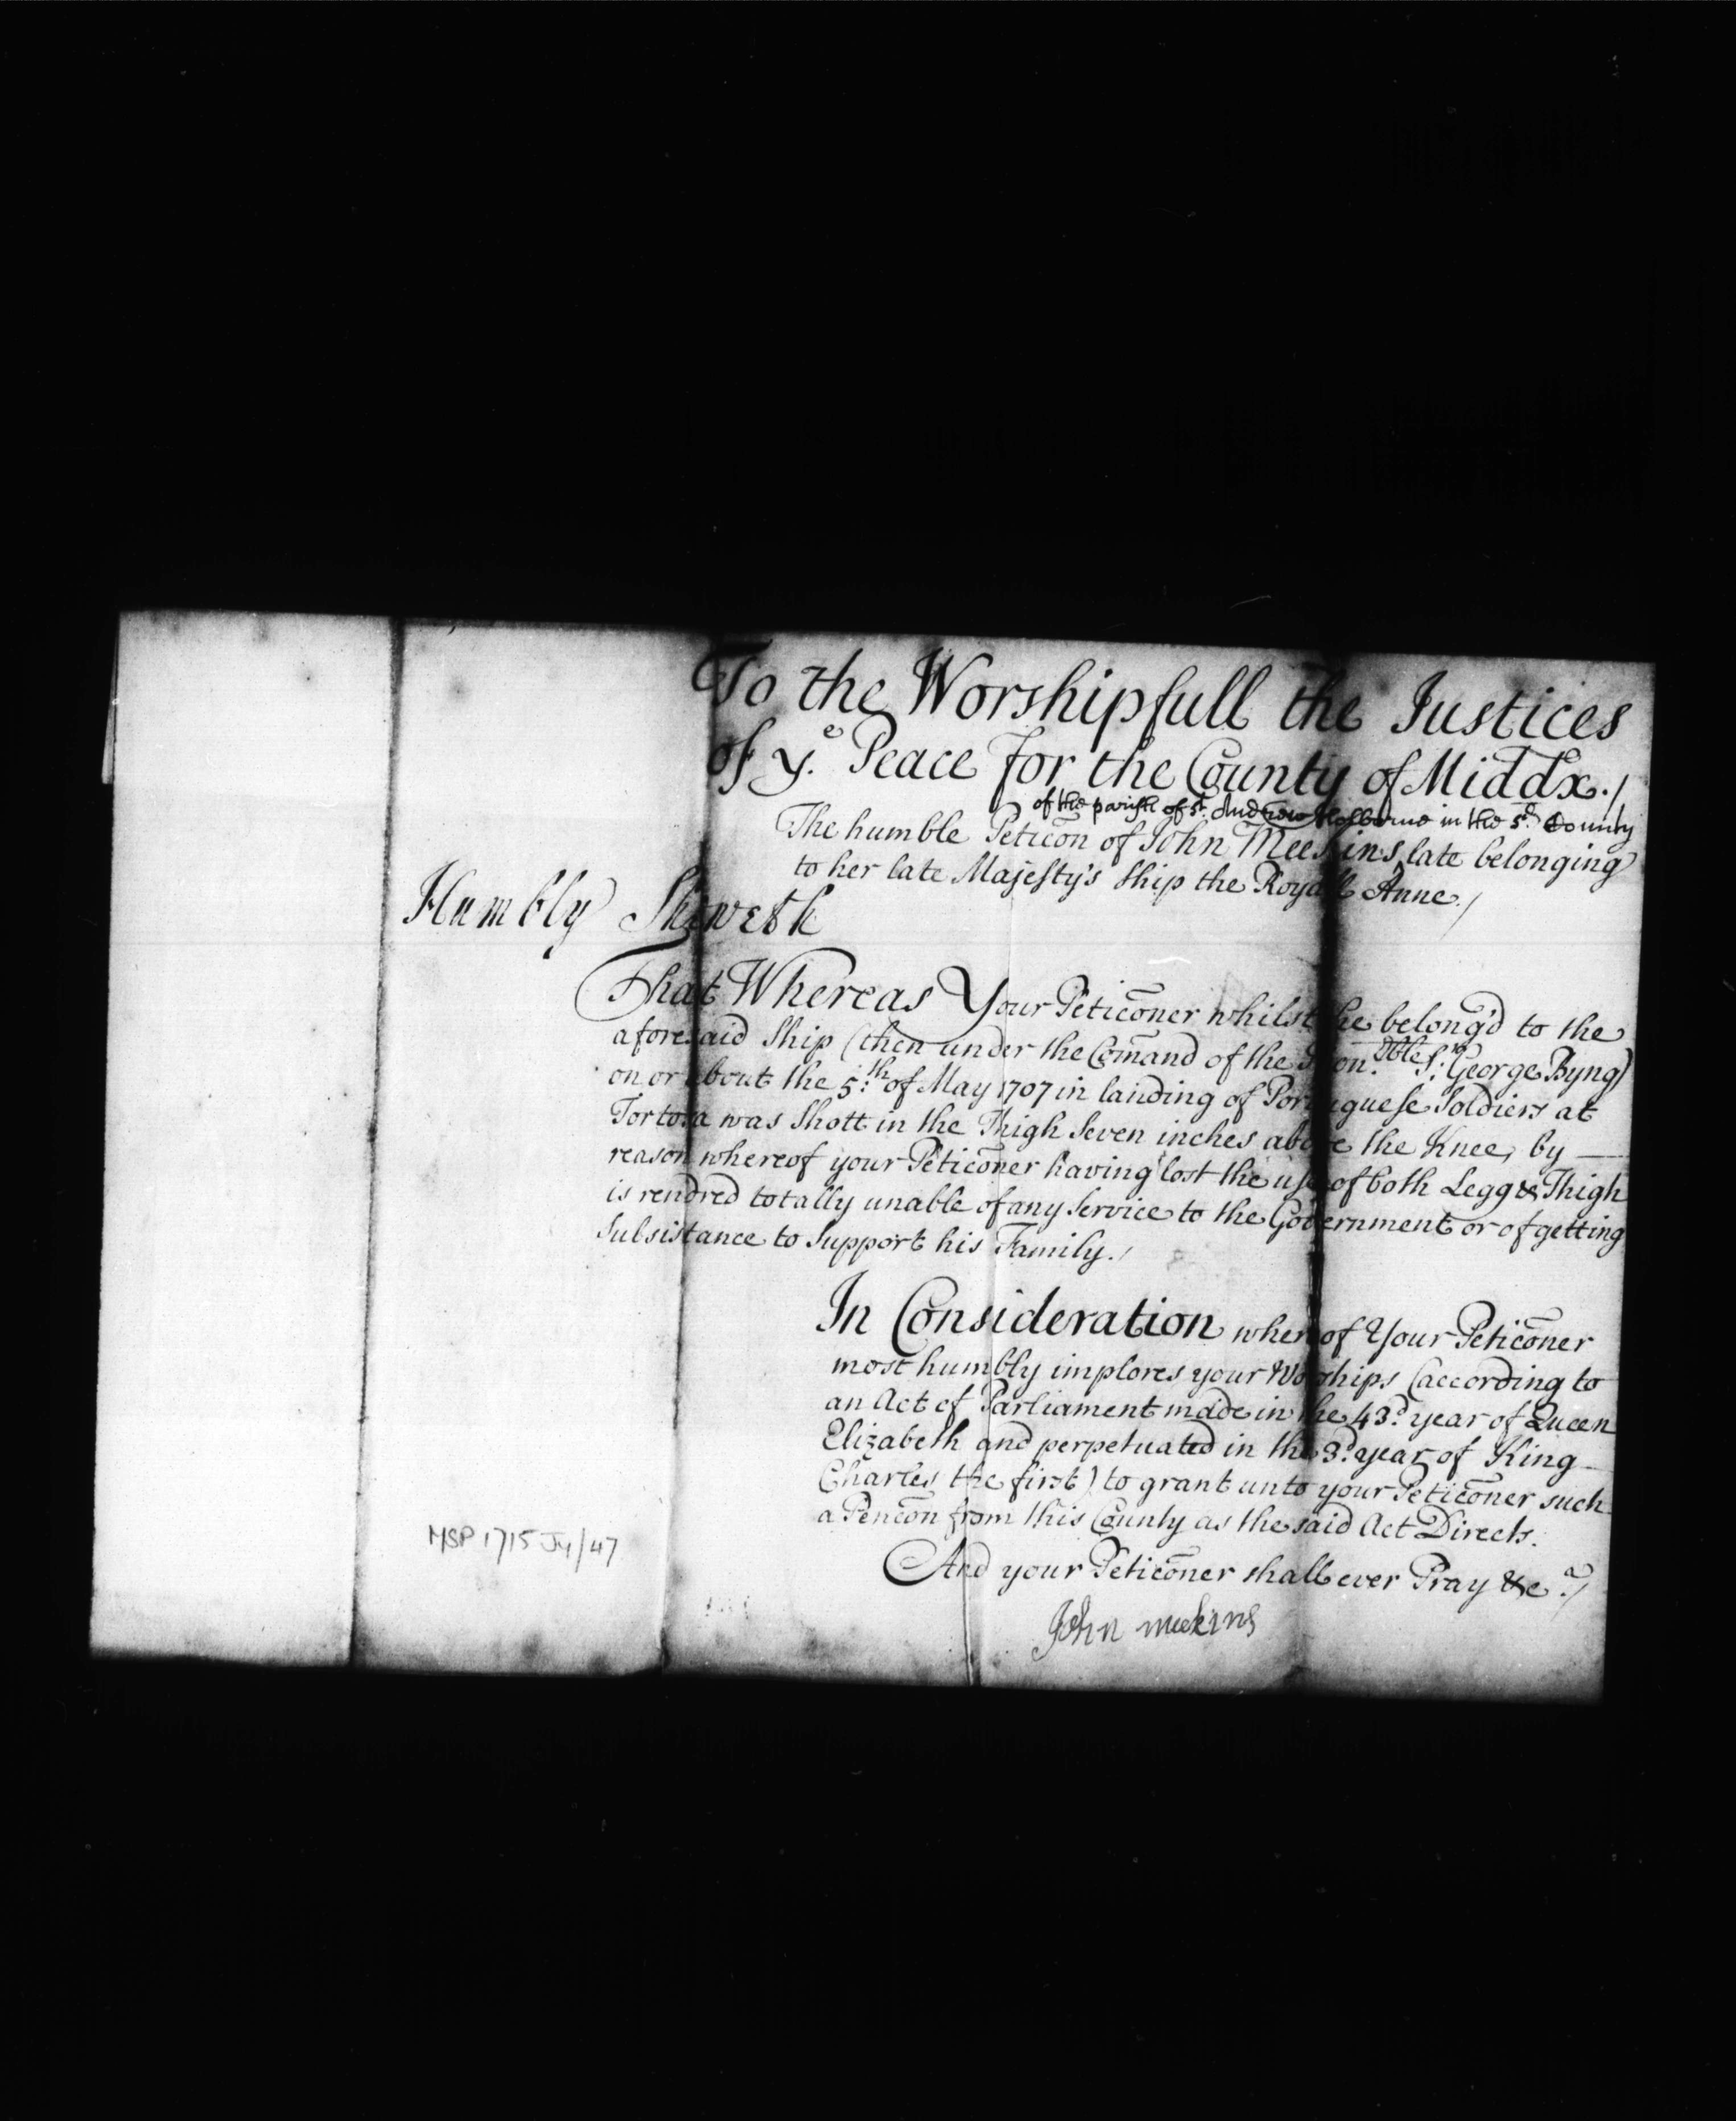 To the Worshipfull the Justices
of yͤ. Peace for the County of Middx./
of the parish of St. Andrew Holborne in the sd. County
The humble Petic̄on of John Meekins late belonging
to her late Majesty's Ship the Royall Anne./
Humbly Sheweth
That Whereas Your Petic̄oner whilst he belong'd to the
aforesaid Ship (then under the Com̄and of the Hon.ᵇˡᵉ Sʳ: George Byng)
on or about the 5:th of May 1707 in landing of Portuguese Soldiers at
Tortosa was Shott in the Thigh Seven inches above the Knee, by —
reason whereof your Petic̄oner having lost the use of both Legg & Thigh
is rendred totally unable of any Service to the Government or of getting
Subsistance to Support his Family./
In Consideration whereof Your Petic̄oner
most humbly implores your Worships (according to
an Act of Parliament made in the 43.d year of Queen
Elizabeth and perpetuated in the 3.d year of King
Charles the first) to grant unto your Petic̄oner such
a Penc̄on from this County as the said Act Directs.
And your Petic̄oner shall ever Pray &c.ᵃ/
John meekins
MSP 1715 Jy/47